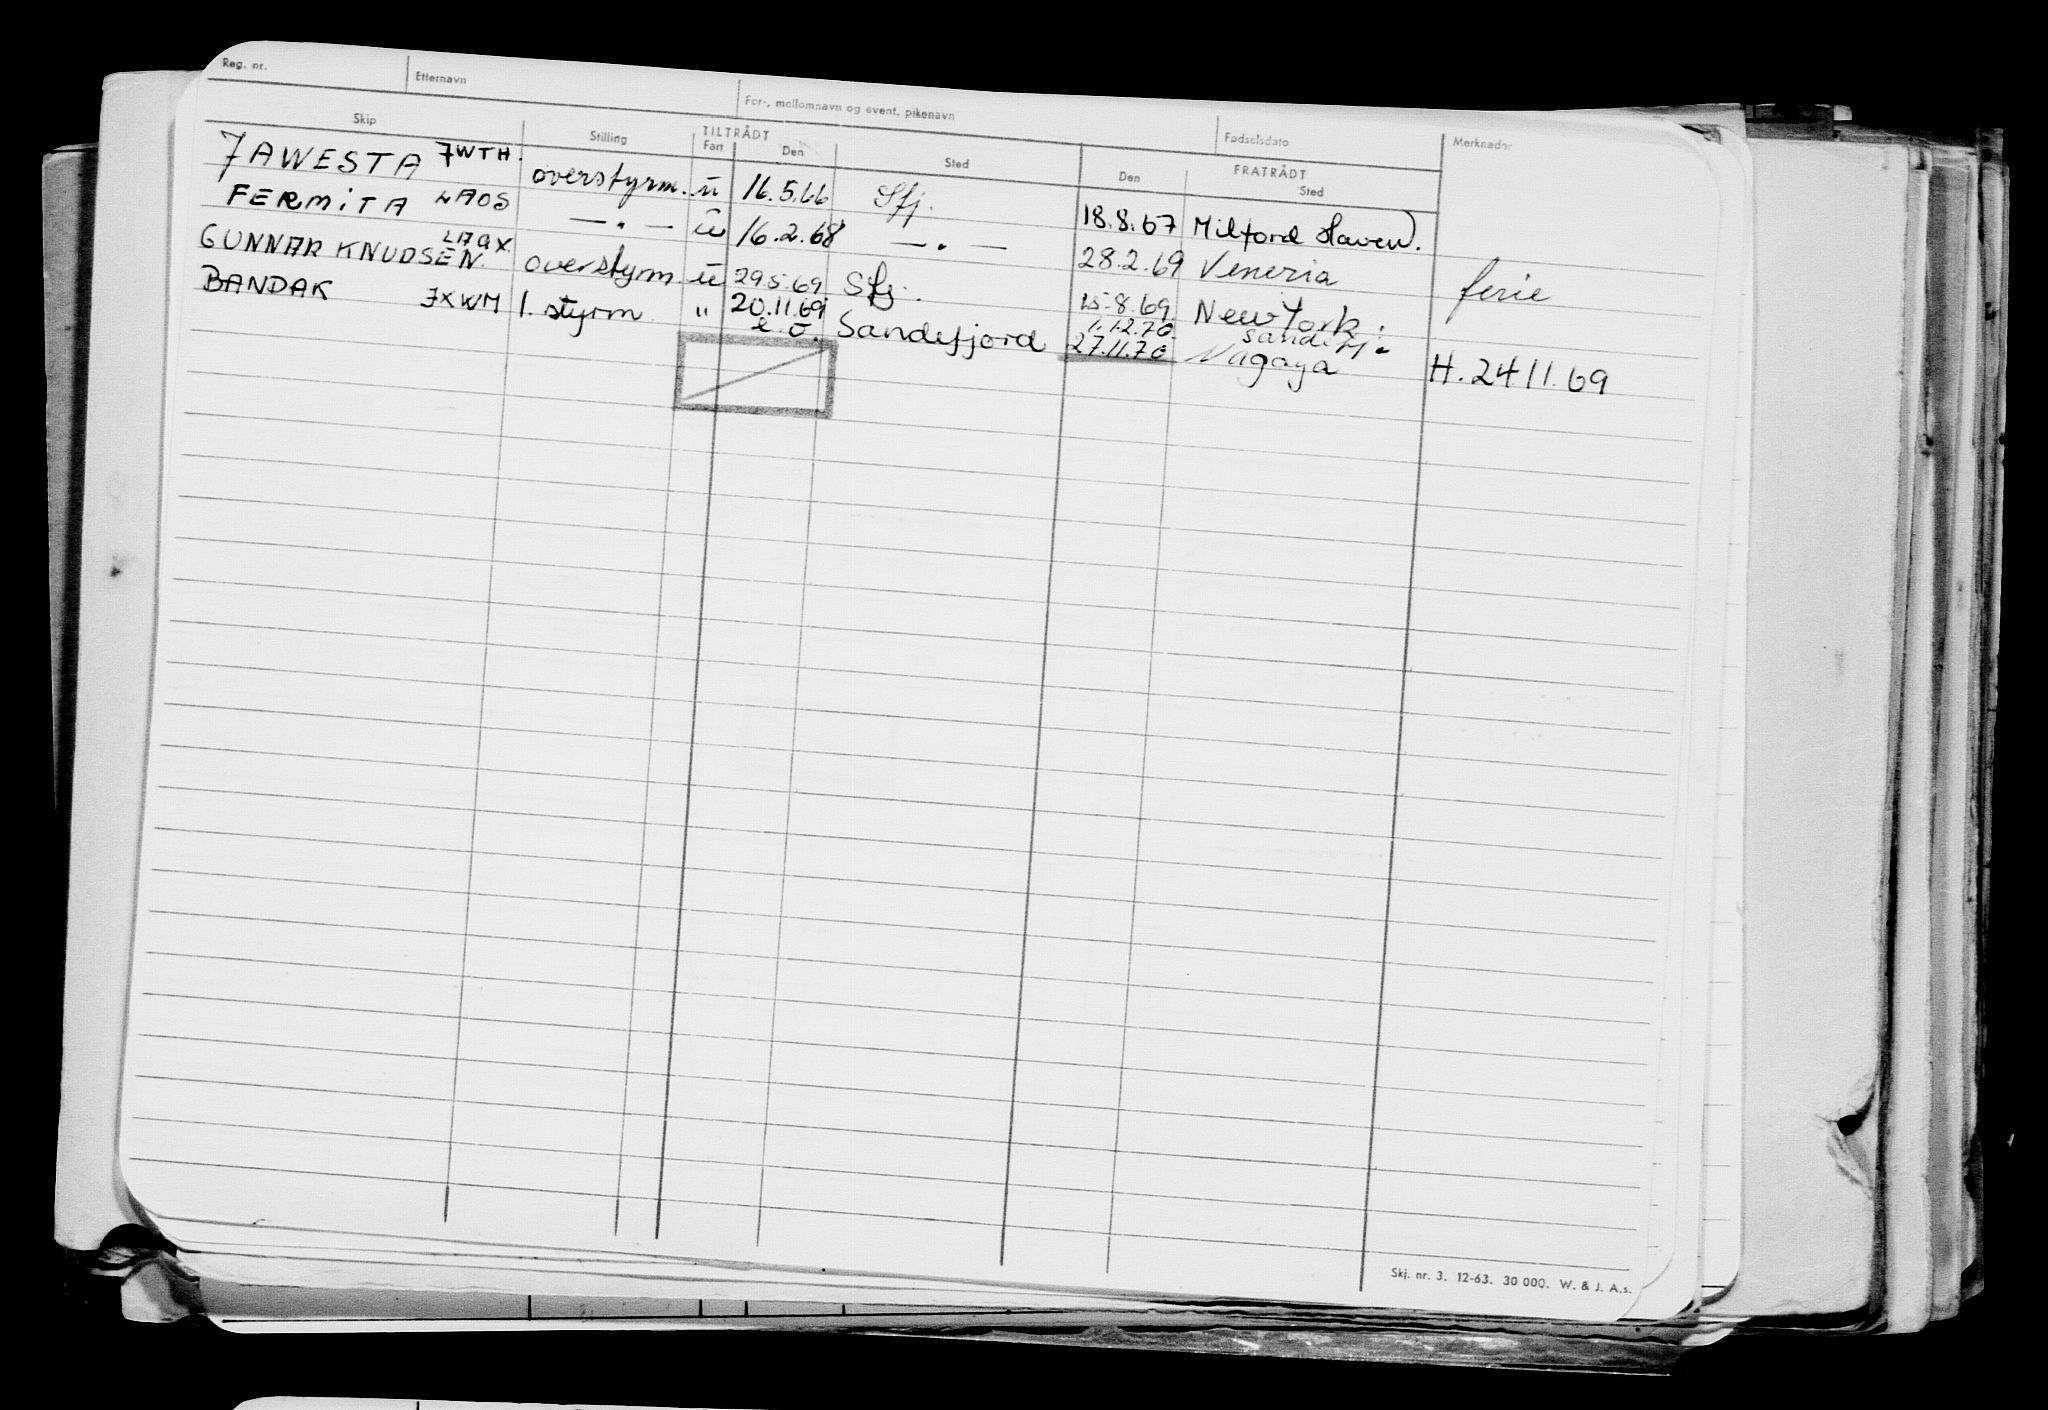 Reg. nr. Etternavn For-, mellomnavn og event. pikenavn Fødselsdato Merknader
Skip Stilling TILTRÅDT FRATRÅDT
Fart Den Sted Den Sted
JAWESTA JWTH. overstyrm. u 16.5.66 Sfj. 18.8.67 Milford Haven.
FERMITA LAOS — " — u 16.2.68 — " — 28.2.69 Venezia ferie
GUNNAR KNUDSEN. LAQX. overstyrm. u 29.5.69 Sfj. 15.8.69. New York.
BANDAK JXWM 1. styrm. " 20.11.69 Sandefjord 1.12.70 Sandefj. H. 24.11.69
e.o. 27.11.70 Nagoya
Skj. nr. 3. 12-63. 30 000. W. & J. A.s.